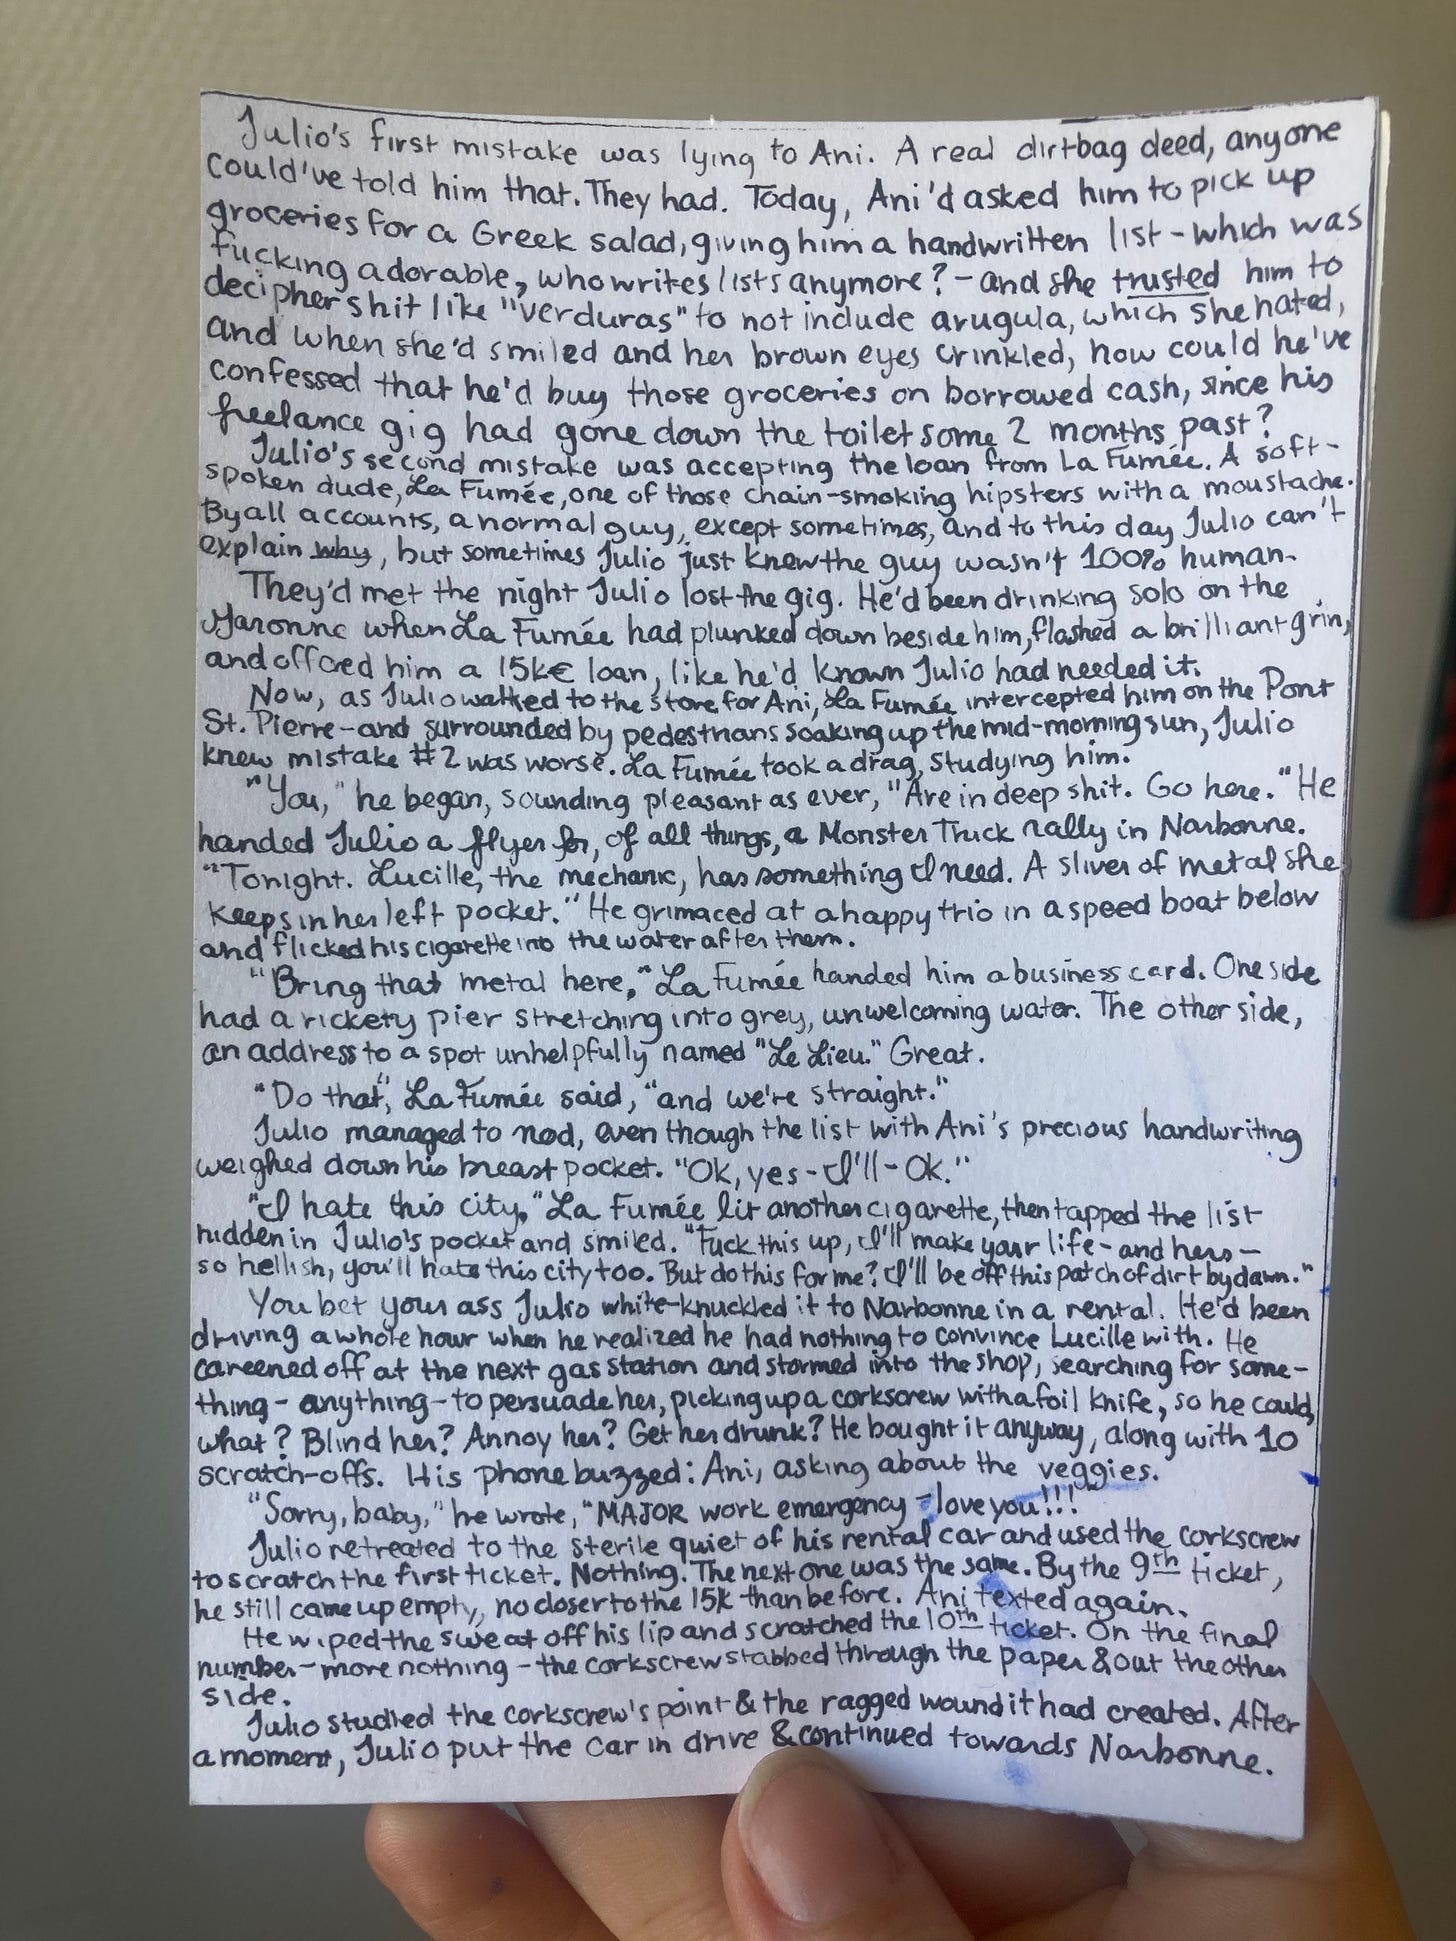 Julio's first mistake was lying to Ani. A real dirtbag deed, anyone
could've told him that. They had. Today, Ani'd asked him to pick up
groceries for a Greek salad, giving him a handwritten list - which was
fucking adorable, who writes lists anymore? - and she trusted him to
decipher shit like "verduras" to not include arugula, which she hated,
and when she'd smiled and her brown eyes crinkled, how could he've
confessed that he'd buy those groceries on borrowed cash, since his
freelance gig had gone down the toilet some 2 months past?
Julio's second mistake was accepting the loan from La Fumée. A soft-
spoken dude, La Fumée, one of those chain-smoking hipsters with a moustache.
By all accounts, a normal guy, except sometimes, and to this day Julio can't
explain why, but sometimes Julio just knew the guy wasn't 100% human.
They'd met the night Julio lost the gig. He'd been drinking solo on the
Garonne when La Fumée had plunked down beside him, flashed a brilliant grin,
and offered him a 15k€ loan, like he'd known Julio had needed it.
Now, as Julio walked to the store for Ani, La Fumée intercepted him on the Pont
St. Pierre - and surrounded by pedestrians soaking up the mid-morning sun, Julio
knew mistake #2 was worse. La Fumée took a drag, studying him.
"You," he began, sounding pleasant as ever, "Are in deep shit. Go here." He
handed Julio a flyer for, of all things, a Monster Truck rally in Narbonne.
"Tonight. Lucille, the mechanic, has something I need. A sliver of metal she
keeps in her left pocket." He grimaced at a happy trio in a speed boat below
and flicked his cigarette into the water after them.
"Bring that metal here," La Fumée handed him a business card. One side
had a rickety pier stretching into grey, unwelcoming water. The other side,
an address to a spot unhelpfully named "Le Lieu." Great.
"Do that", La Fumée said, "and we're straight."
Julio managed to nod, even though the list with Ani's precious handwriting
weighed down his breast pocket. "Ok, yes - I'll - Ok."
"I hate this city," La Fumée lit another cigarette, then tapped the list
hidden in Julio's pocket and smiled. "Fuck this up, I'll make your life - and hers -
so hellish, you'll hate this city too. But do this for me? I'll be off this patch of dirt by dawn."
You bet your ass Julio white-knuckled it to Narbonne in a rental. He'd been
driving a whole hour when he realized he had nothing to convince Lucille with. He
careened off at the next gas station and stormed into the shop, searching for some-
thing - anything - to persuade her, picking up a corkscrew with a foil knife, so he could,
what? Blind her? Annoy her? Get her drunk? He bought it anyway, along with 10
scratch-offs. His phone buzzed: Ani, asking about the veggies.
"Sorry, baby," he wrote, "MAJOR work emergency - love you!!!"
Julio retreated to the sterile quiet of his rental car and used the corkscrew
to scratch the first ticket. Nothing. The next one was the same. By the 9th ticket,
he still came up empty, no closer to the 15k than before. Ani texted again.
He wiped the sweat off his lip and scratched the 10th ticket. On the final
number - more nothing - the corkscrew stabbed through the paper & out the other
side.
Julio studied the corkscrew's point & the ragged wound it had created. After
a moment, Julio put the car in drive & continued towards Narbonne.